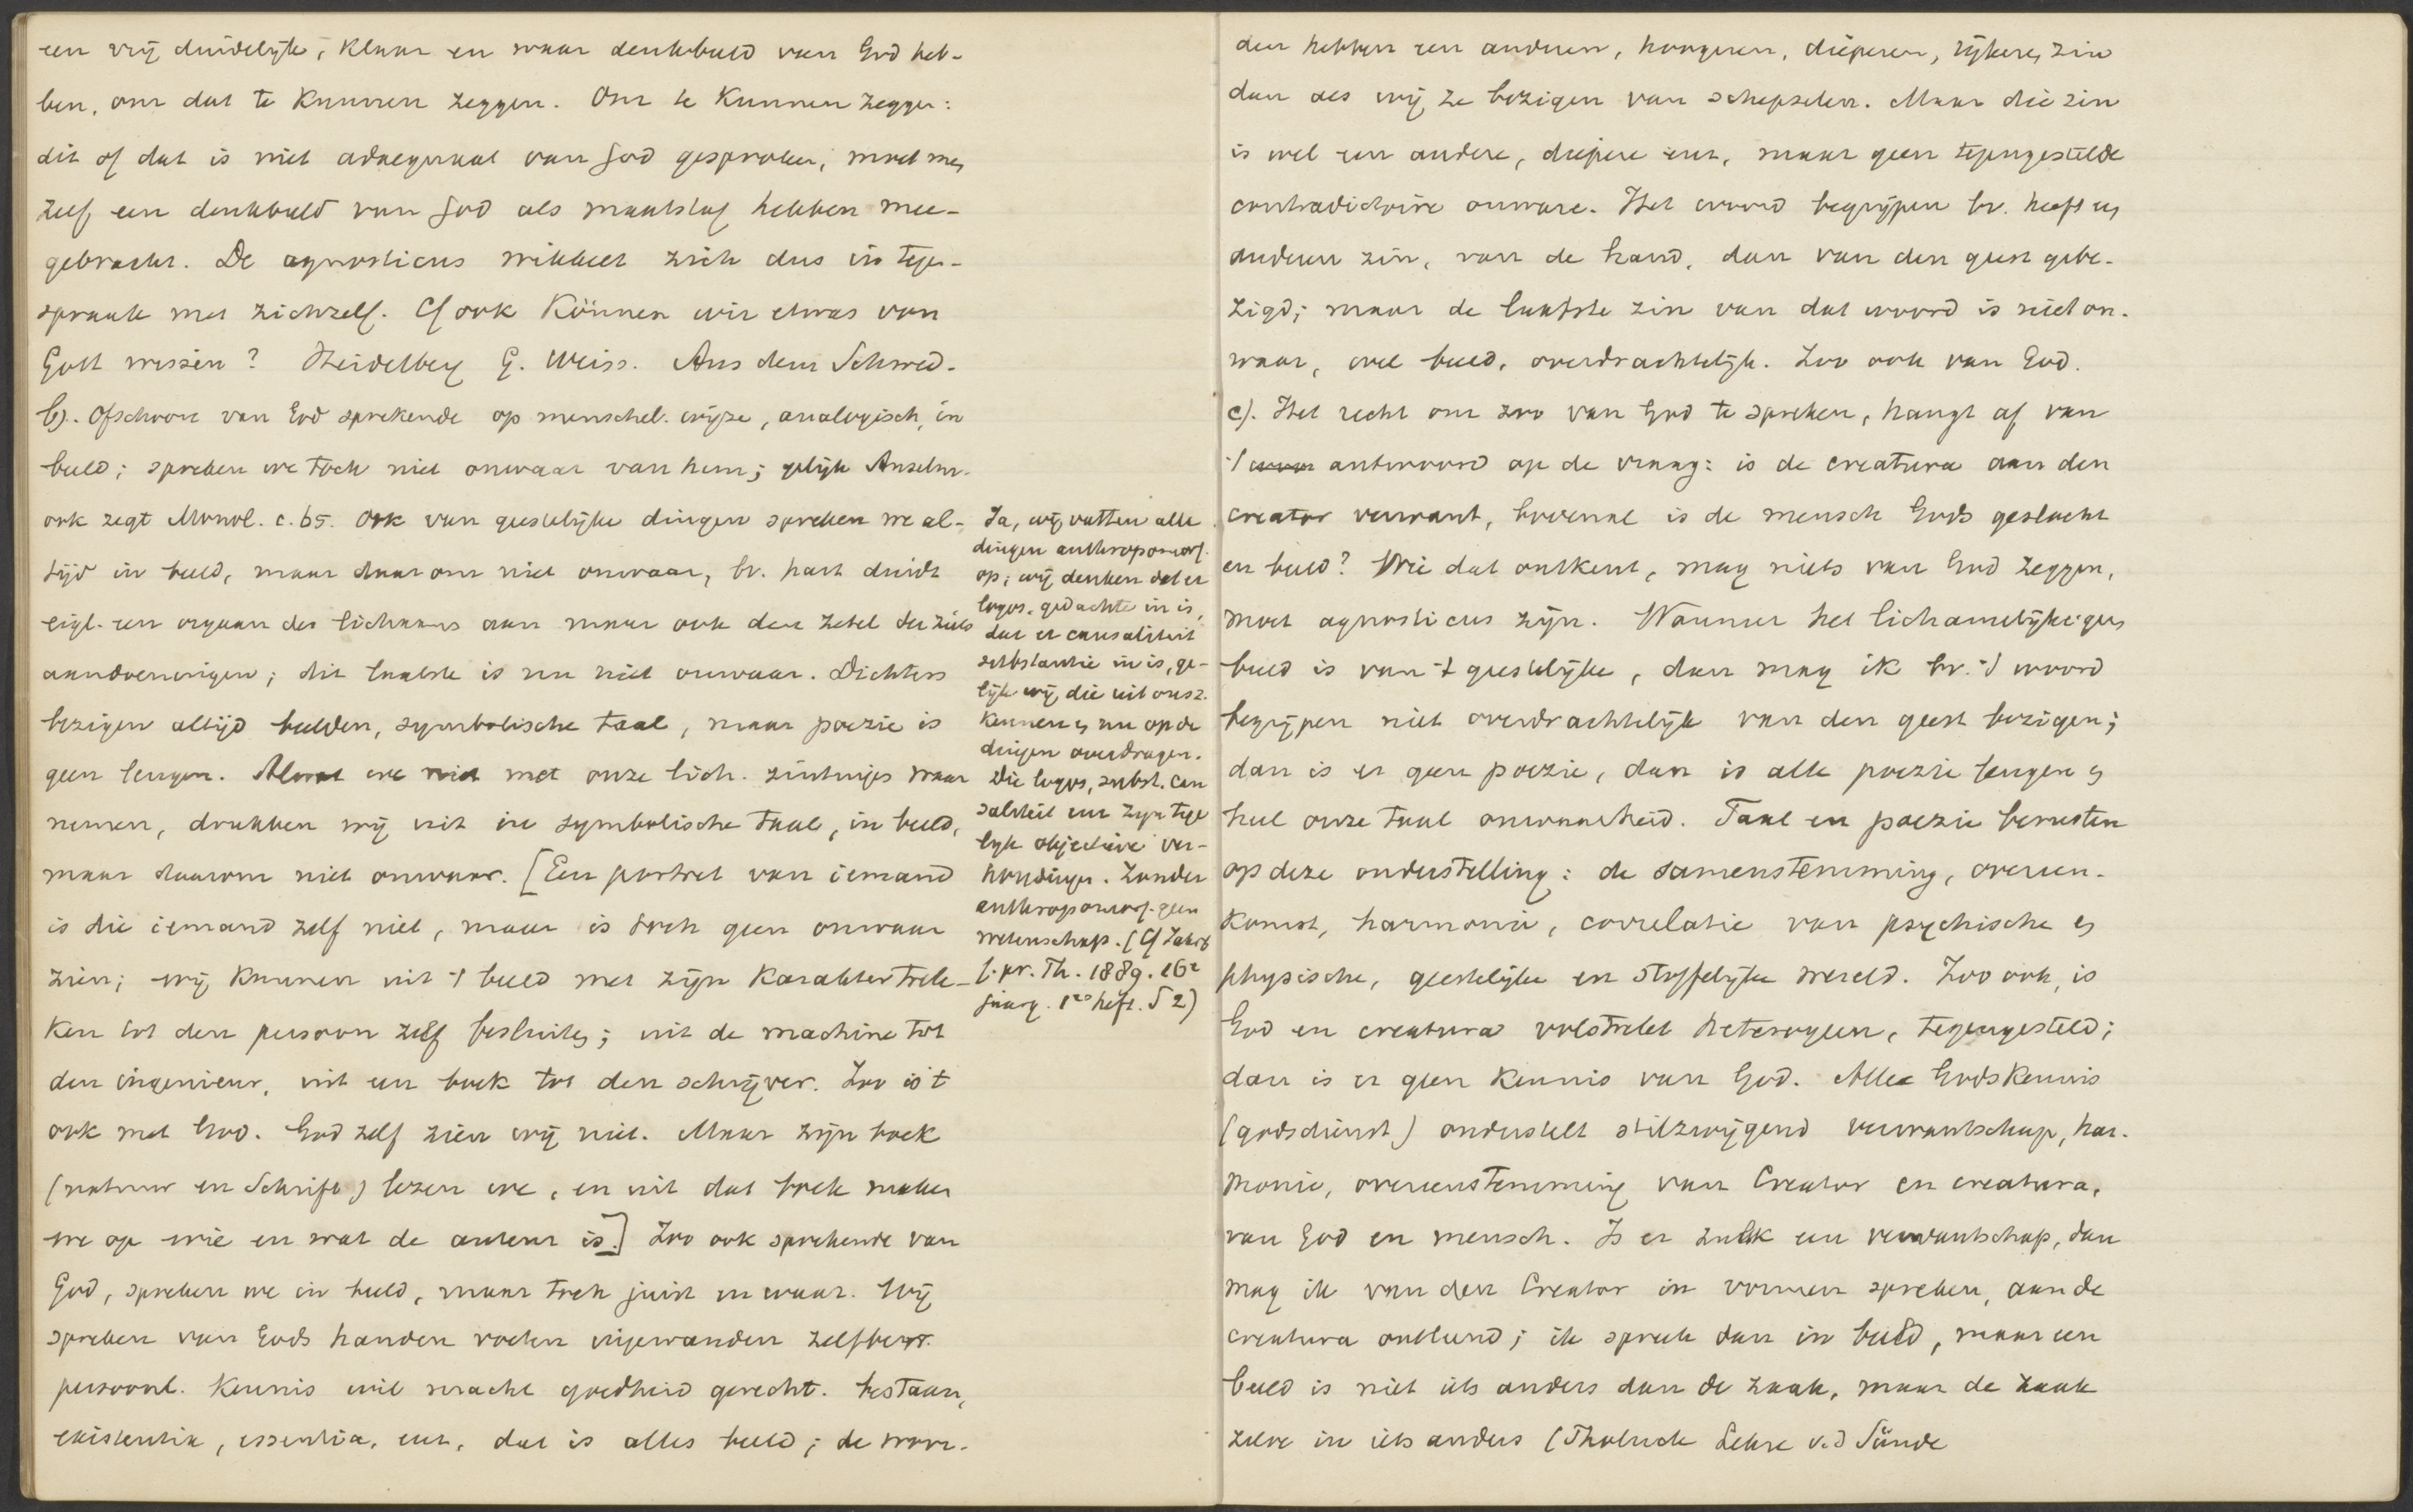 een vrij duidelijk, klaar en waar denkbeeld van God heb-
ben, om dat te kunnen zeggen. Om te kunnen zeggen:
dit of dat is niet adaequaat van God gesproken, moet men
zelf een denkbeeld van God als maatstaf hebben mee-
gebracht. De agnosticus wikkelt zich dus in tegen-
spraak met zichzelf. Cf ook Können wir etwas von
Gott wissen? Heidelberg G. Weiss. Aus dem Schwed.
b). Ofschoon van God sprekende op menschel. wijze, analogisch, in
beeld; spreken we toch niet onwaar van hem; gelijk Anselm.
ook zegt Monol. c. 65. Ook van geestelijke dingen spreken we al-
tijd in beeld, maar daarom niet onwaar, bv. hart duidt
eigl. een orgaan des lichaams aan maar ook den zetel der ziels
aandoeningen; dit laatste is nu niet onwaar. Dichters
bezigen altijd beelden, symbolische taal, maar poezie is
geen leugen. Al wat we niet met onze lich. zintuigen waar
nemen, drukken wij uit in symbolische taal, in beeld,
maar daarom niet onwaar. [Een portret van iemand
is die iemand zelf niet, maar is toch geen onwaar
zien; wij kunnen uit 't beeld met zijn karaktertrek-
ken tot den persoon zelf besluiten; uit de machine tot
den ingenieur, uit een boek tot den schrijver. Zoo is 't
ook met God. God zelf zien wij niet. Maar zijn boek
(natuur en Schrift) lezen we, en uit dat boek maken
we op wie en wat de auteur is.] Zoo ook sprekende van
God, spreken we in beeld, maar toch juist en waar. Wij
spreken van Gods handen voeten ingewanden zelfbew.
persoonl. kennis wil macht goedheid gerecht. bestaan,
existentia, essentia, enz., dat is alles beeld; de woor-
Ja, wij vatten alle
dingen anthropomorf.
op; wij denken dat er
logos, gedachte in is,
dat er causaliteit
substantie in is, ge-
lijk wij die uit onsz.
kennen en nu op de
dingen overdragen.
Die logos, subst. cau
saliteit enz zijn tege
lijk objectieve ver-
houdingen. Zonder
anthropomorf. geen
wetenschap. (Cf Jahrb
f. pr. Th. 1889. 16e
jaarg. 1es heft. S 2)
den hebben een anderen, hoogeren, dieperen, rijkeren zin
dan als wij ze bezigen van schepselen. Maar die zin
is wel een andere, diepere enz, maar geen tegengestelde
contradictoire onware. Het woord begrijpen bv. heeft een
anderen zin, van de hand, dan van den geest gebe-
zigd; maar de laatste zin van dat woord is niet on-
waar, wel beeld, overdrachtelijk. Zoo ook van God.
c). Het recht om zoo van God te spreken, hangt af van
't antwoord op de vraag: is de creatura aan den
creator verwant, bovenal is de mensch Gods geslacht
en beeld? Wie dat ontkent, mag niets van God zeggen,
moet agnosticus zijn. Wanneer het lichamelijke geen
beeld is van 't geestelijke, dan mag ik bv. 't woord
begrijpen niet overdrachtelijk van den geest bezigen;
dan is er geen poezie, dan is alle poezie leugen en
heel onze taal onwaarheid. Taal en poezie berusten
op deze onderstelling: de samenstemming, overeen-
komst, harmonie, correlatie van psychische en
physische, geestelijke en stoffelijke wereld. Zoo ook, is
God en creatura volstrekt heterogeen, tegengesteld;
dan is er geen kennis van God. Alle Godskennis
(godsdienst) onderstelt stilzwijgend verwantschap, har-
monie, overeenstemming van Creator en creatura,
van God en mensch. Is er zulk een verwantschap, dan
mag ik van den Creator in vormen spreken, aan de
creatura ontleend; ik spreek dan in beeld, maar een
beeld is niet iets anders dan de zaak, maar de zaak
zelve in iets anders (Tholuck Lehre v.d Sünde